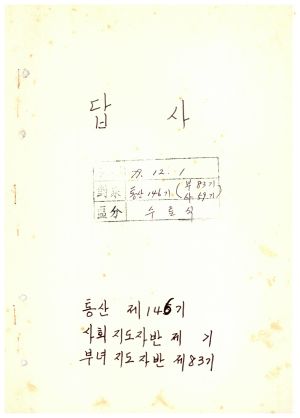 답 사
79. 12. 1
對象 통산 146기 (부 83기
사 59기)
區分 수료식
통산 제146기
사회지도자반 제 기
부녀지도자반 제83기